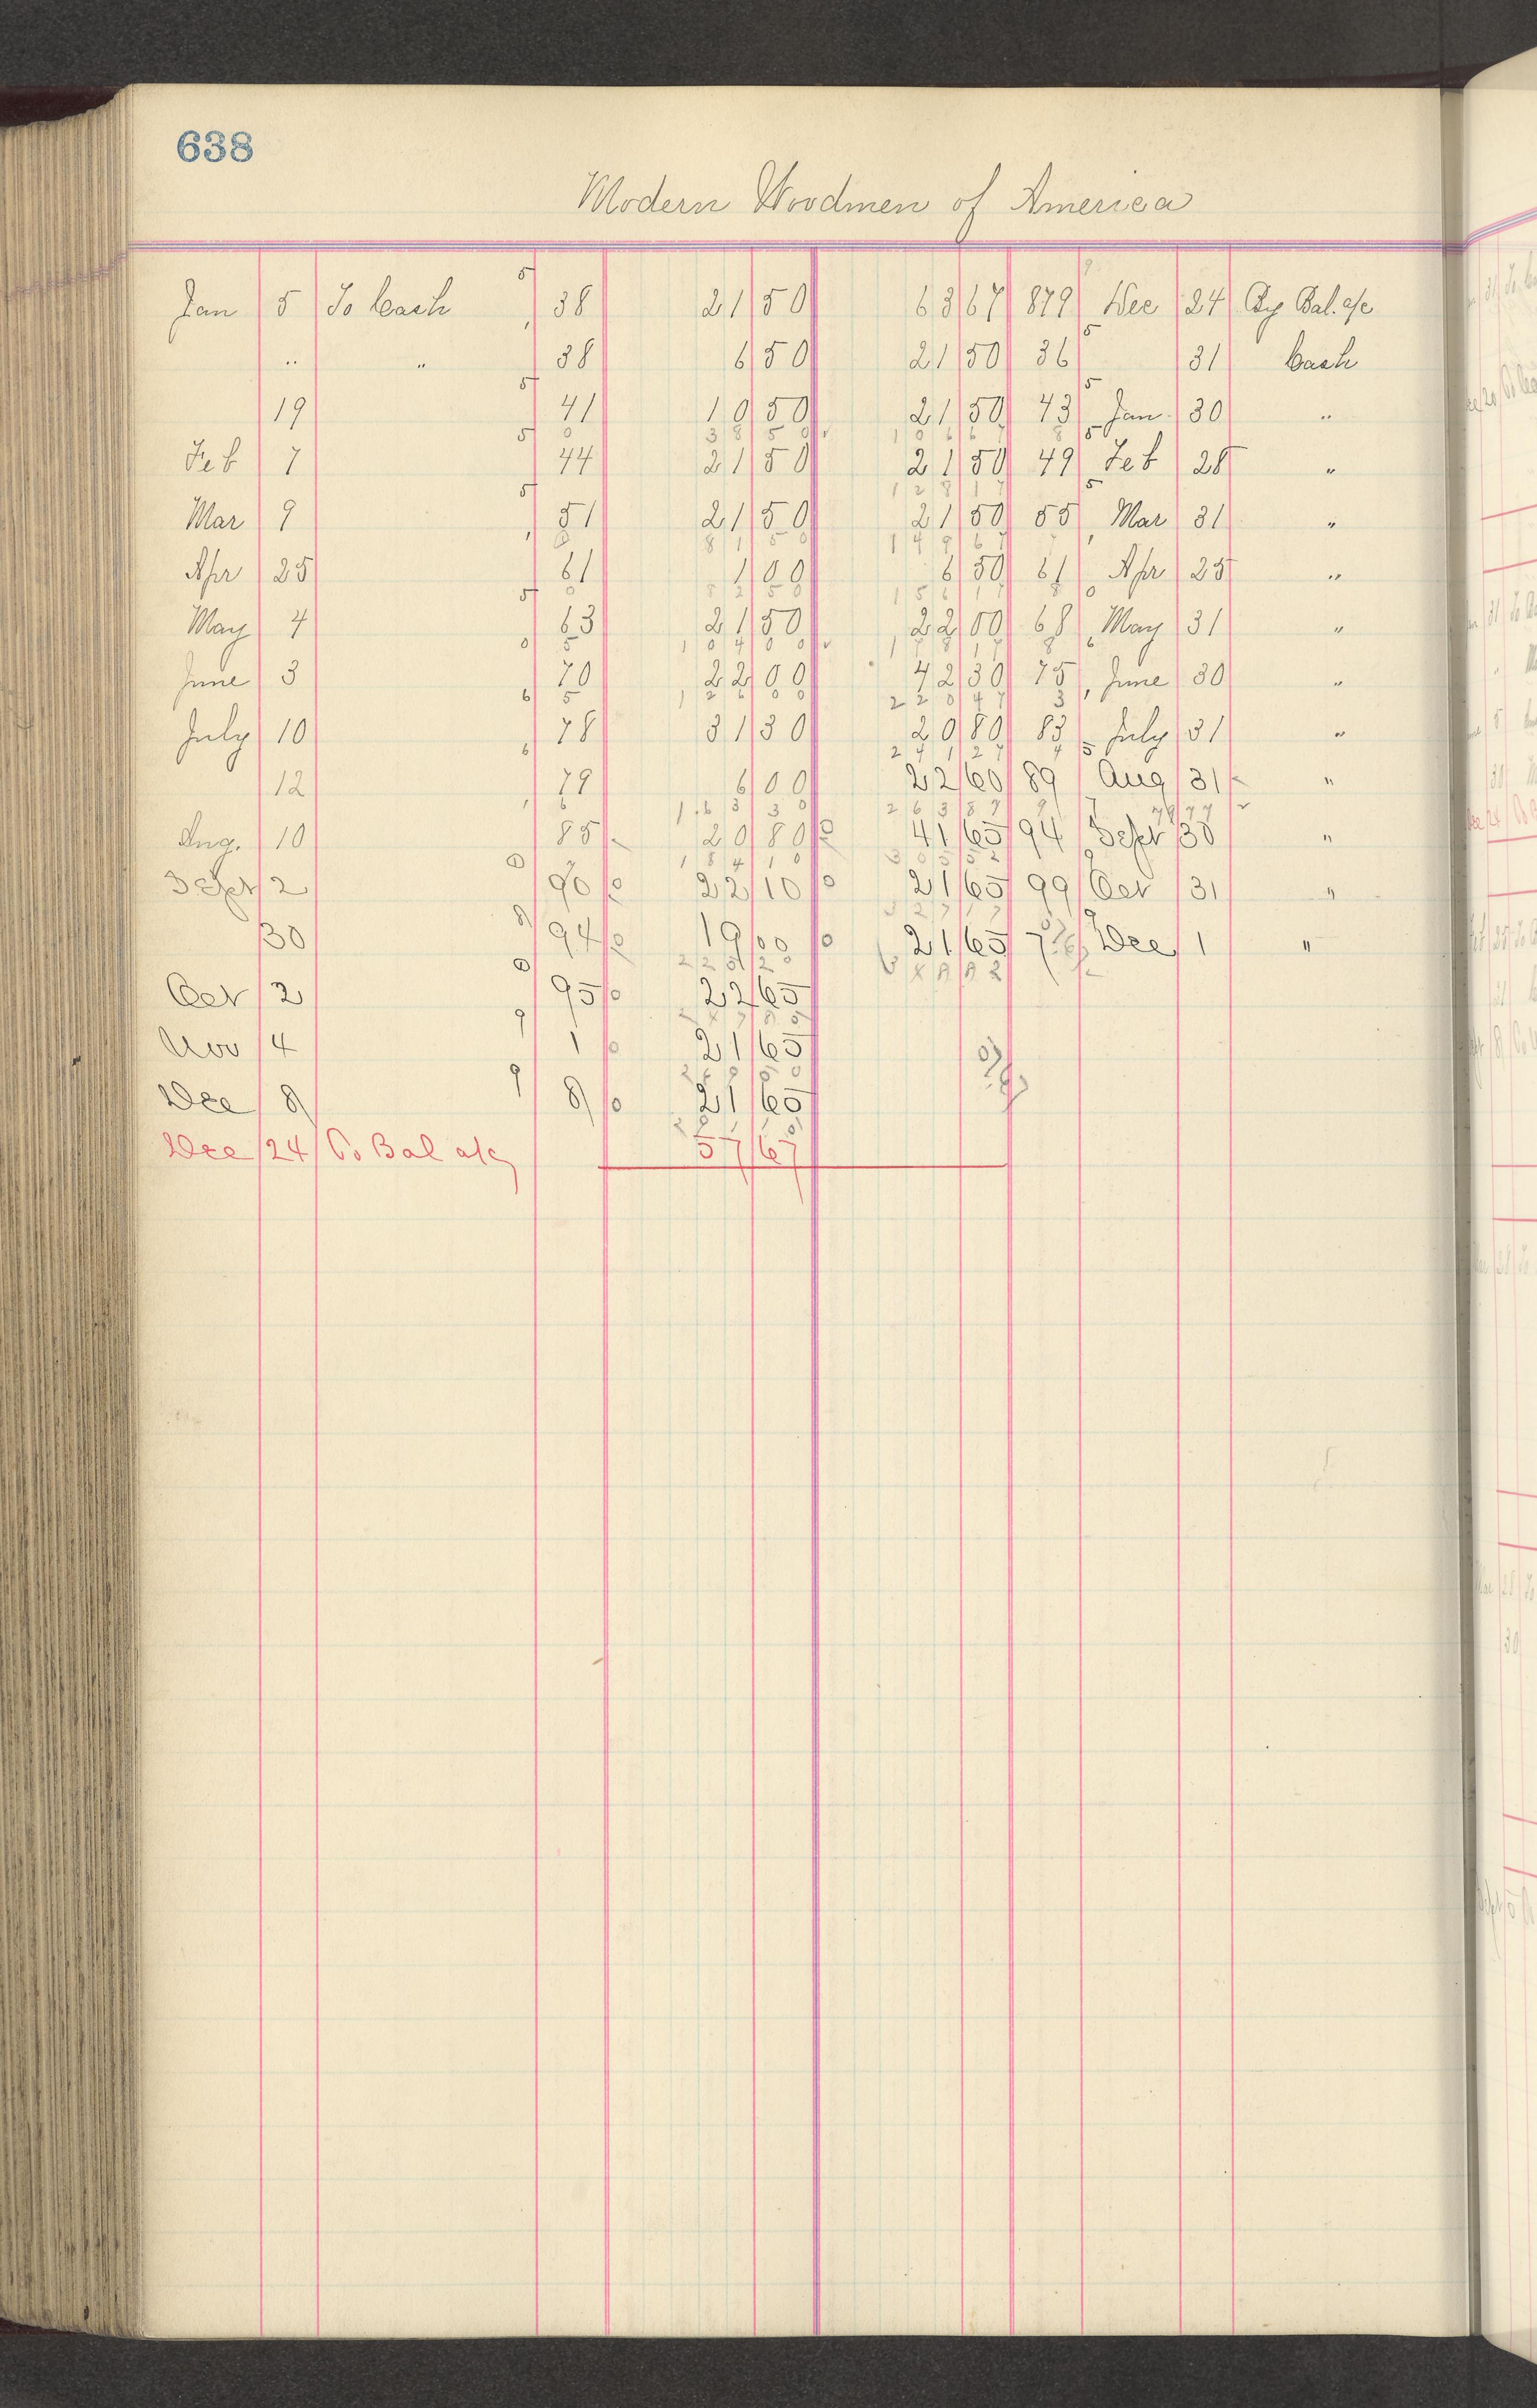 638
Modern Woodmen of America
Jan 5 To Cash 38 21 50 63 67 879 Dec 24 By Bal. a/c
" " 38 6 50 21 50 36 31 Cash
19 41 10 50 21 50 43 Jan 30 "
Feb 7 44 21 50 21 50 49 Feb 28 "
Mar 9 51 21 50 21 50 55 Mar 31 "
Apr 25 61 1 00 6 50 61 Apr 25 "
May 4 63 21 50 22 00 68 May 31 "
June 3 70 22 00 42 30 75 June 30 "
July 10 78 31 30 20 80 83 July 31 "
12 79 6 00 22 60 89 Aug 31 "
Aug. 10 85 20 80 41 65 94 Sept 30 "
Sept 2 90 22 10 21 65 99 Oct 31 "
30 94 19 00 21 65 Dec 1 "
Oct 2 95 22 65
Nov 4 1 21 65
Dec 8 8 21 65
Dec 24 To Bal a/c 57 67